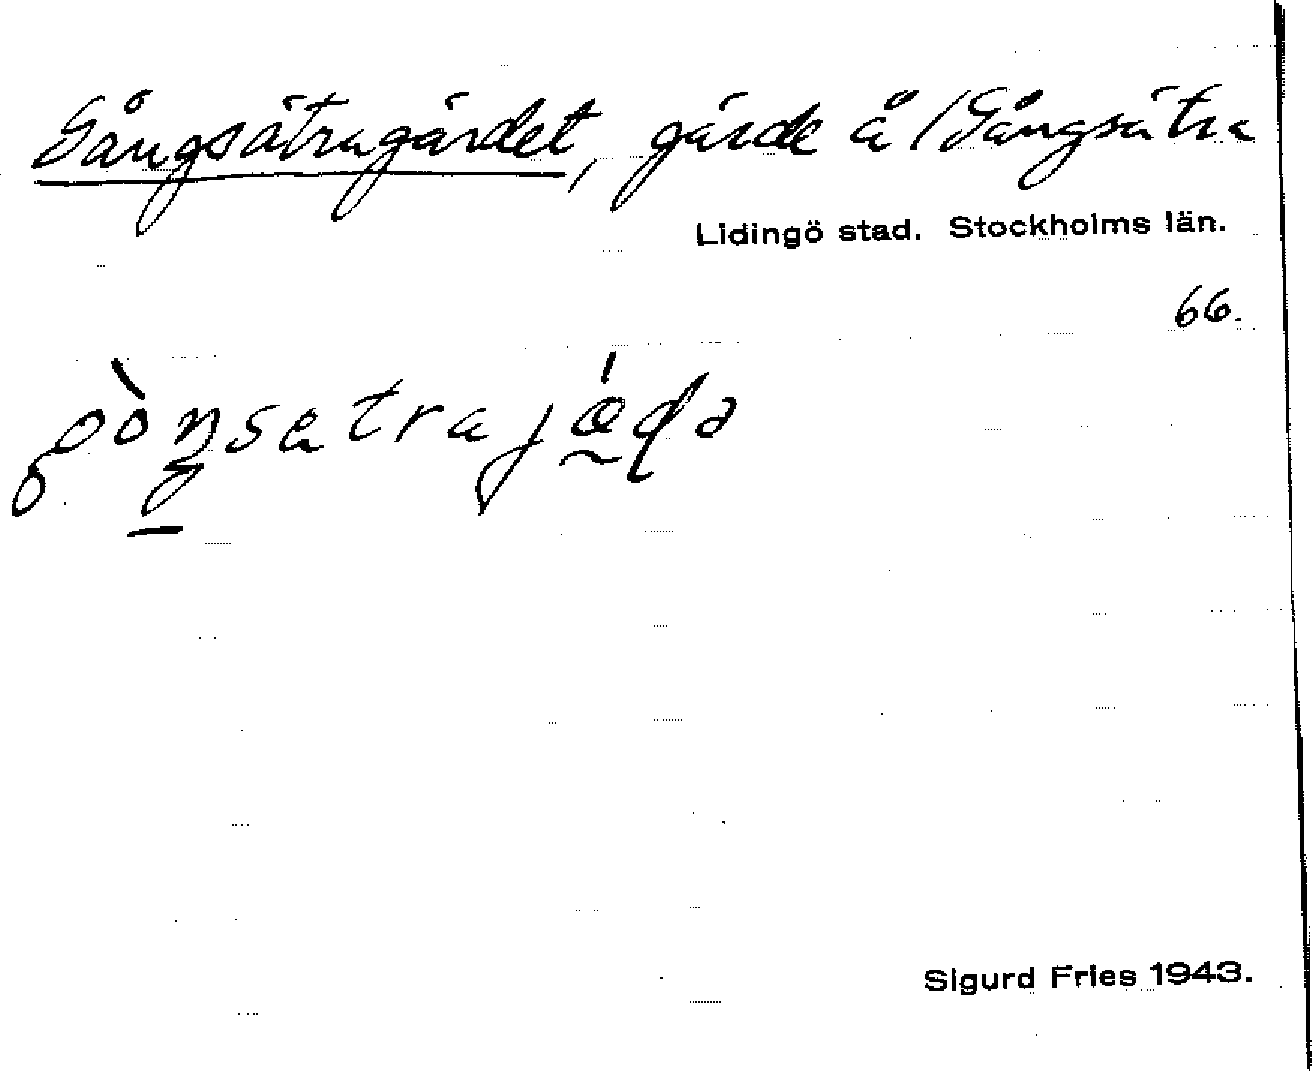 Gångsätragärdet, gärde å /Gångsätra
Lidingö stad. Stockholms län.
66.
Sigurd Fries 1943.